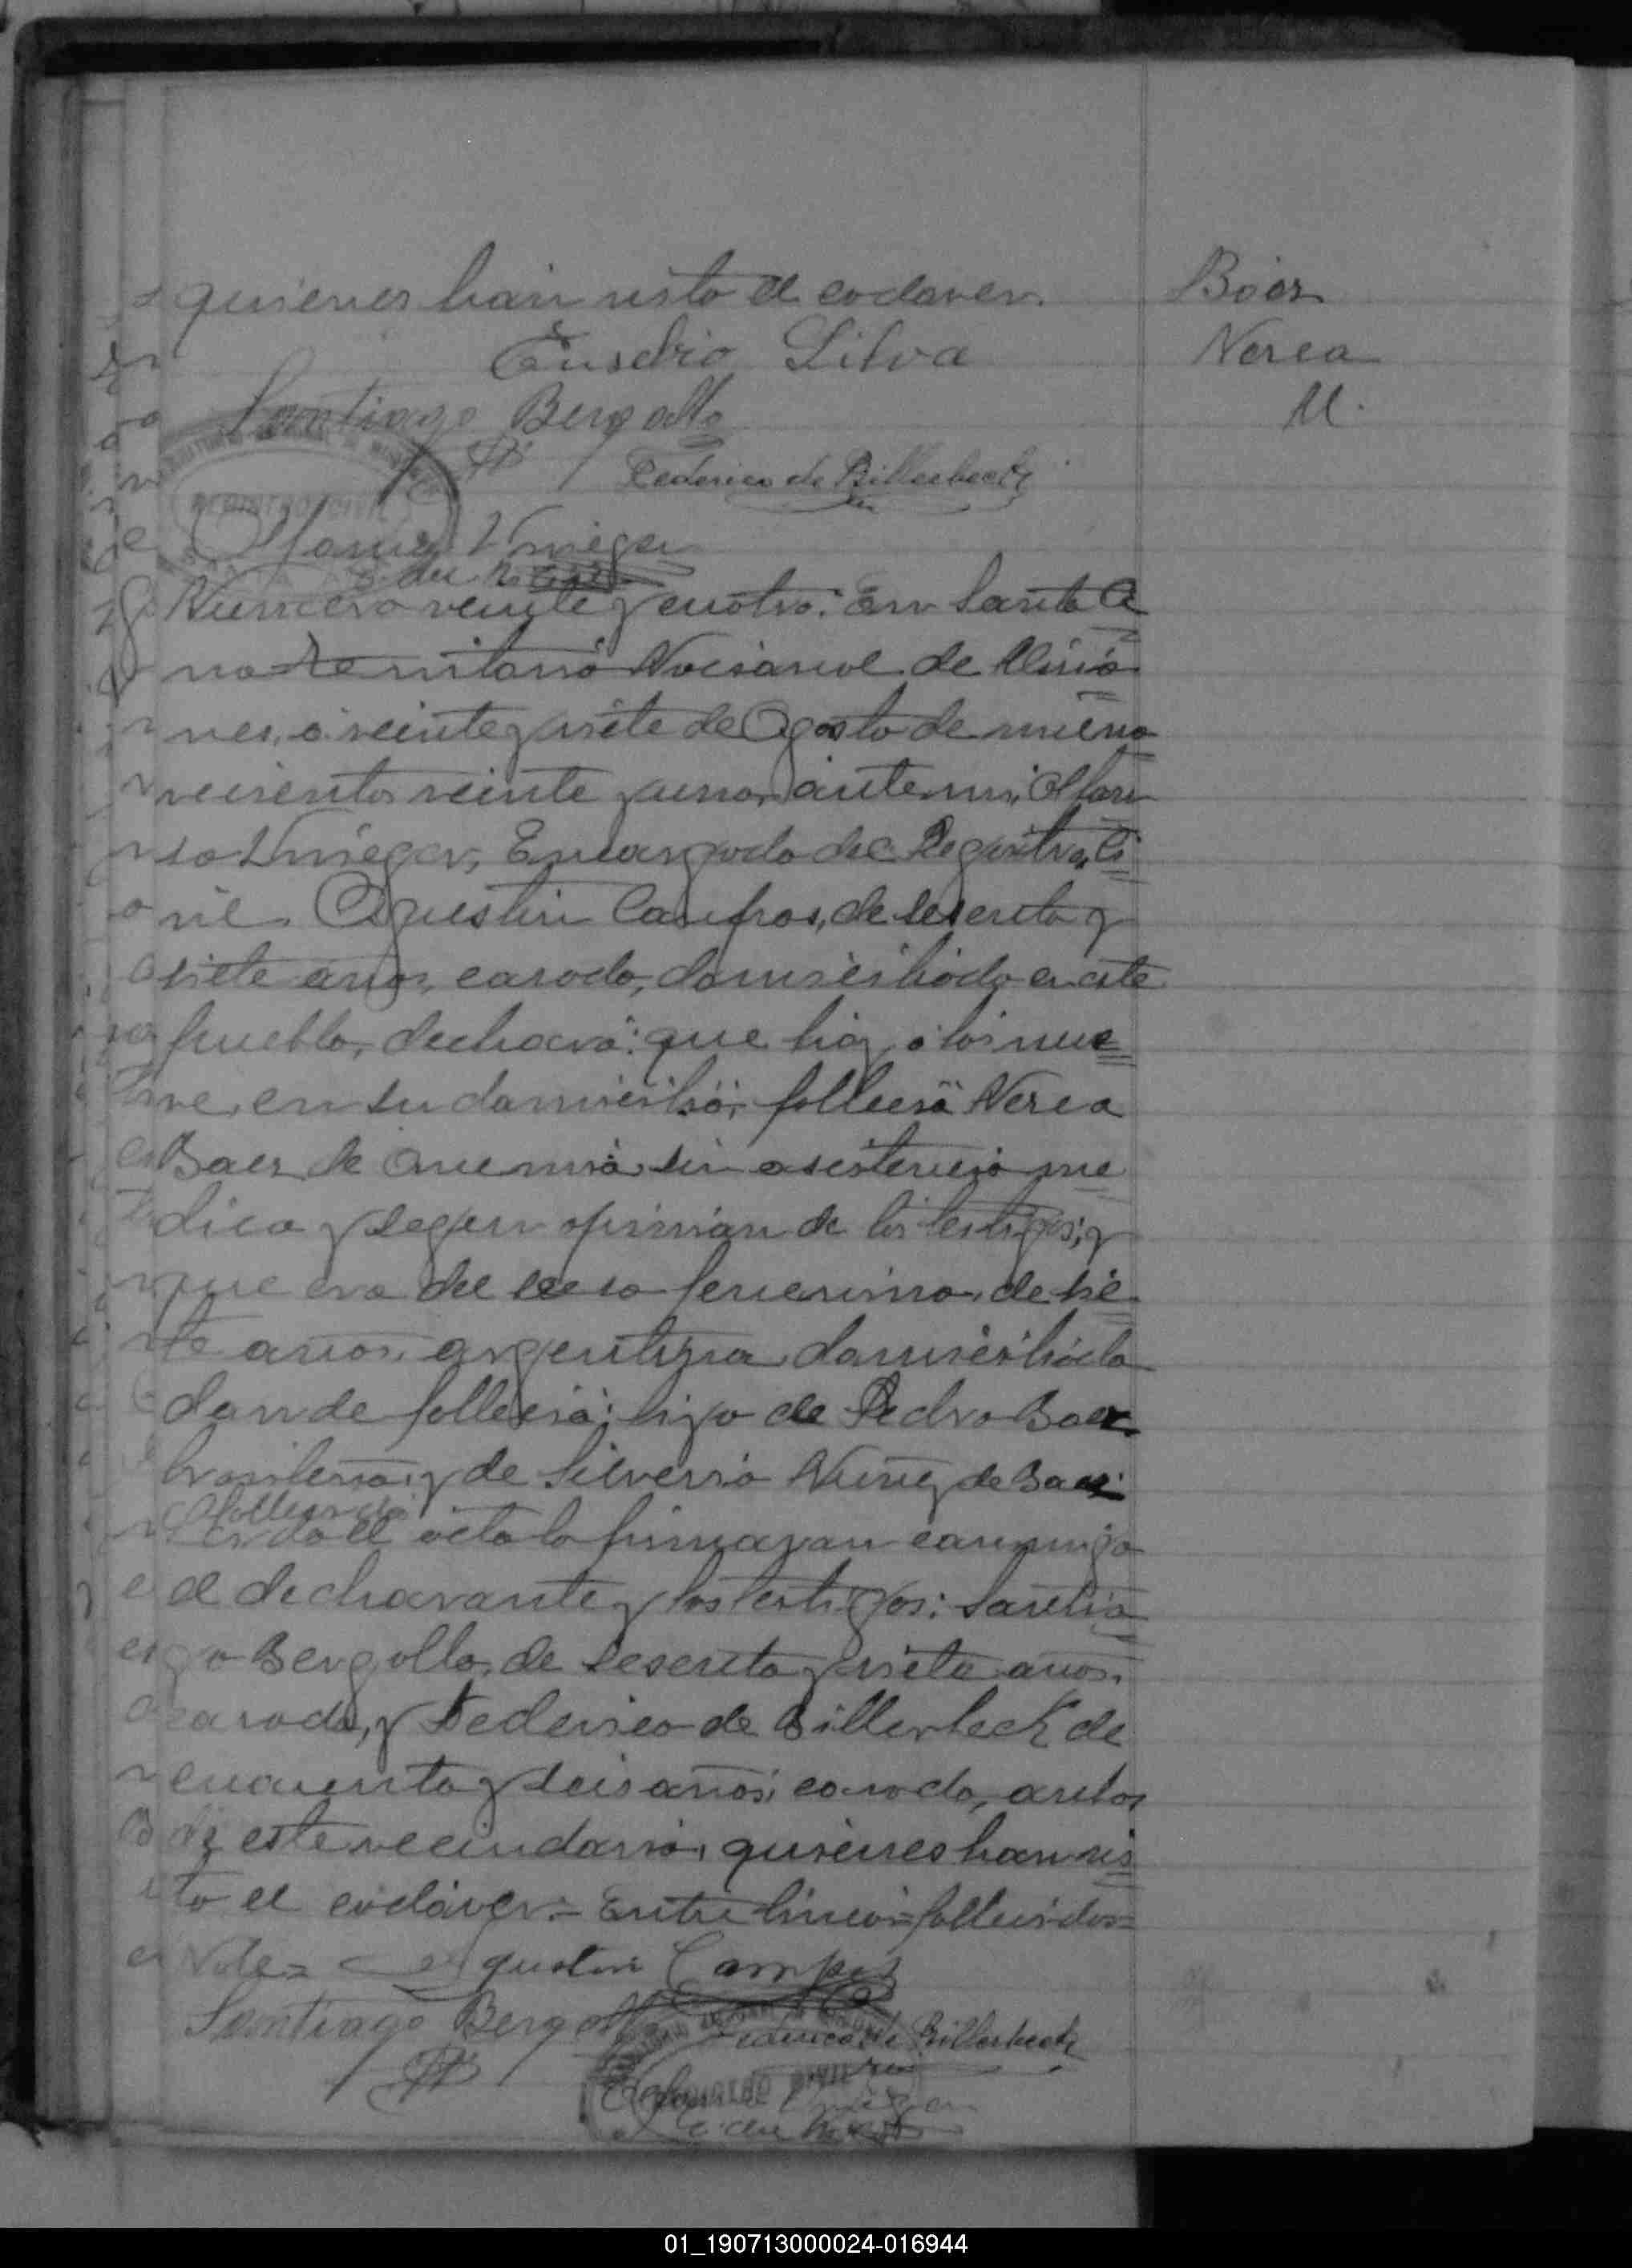 quienes han visto el cadaver.
Eusebio Silva
Santiago Bergallo
Federico de Billerbeck
REGISTRO CIVIL
Báez
Nerea
M.
Numero veinte y cuatro: En Santa A
na Territorio Nacional de Misio
nes, á veinte y siete de Agosto de mil no
vecientos veinte y uno, ante mi,
Encargado del Registro Ci
vil, Agustin Campos, de sesenta y
siete años, casado, domiciliado en este
pueblo, declaró: que hoy á las nue
ve, en su domicilio, falleció Nerea
Baez de anemia sin asistencia me
dica y segun opinión de los testigos; y
que era del sexo femenino, de sie
te años, argentina, domiciliada
donde falleció; hija de Pedro Baez
brasilero, y de Silveria Nuñez de Baez
fallecidos
el acta la firmaran conmigo
el declarante y los testigos: Santia
go Bergallo, de sesenta y siete años,
casado, y Federico de Billerbeck de
cuarenta y seis años, casado, ambos
de este vecindario, quienes han vis
to el cadáver.- Entre lineas=fallecidos=
Vale= Agustin Campos
Santiago Bergallo Federico de Billerbeck
REGISTRO CIVIL
01_190713000024-016944